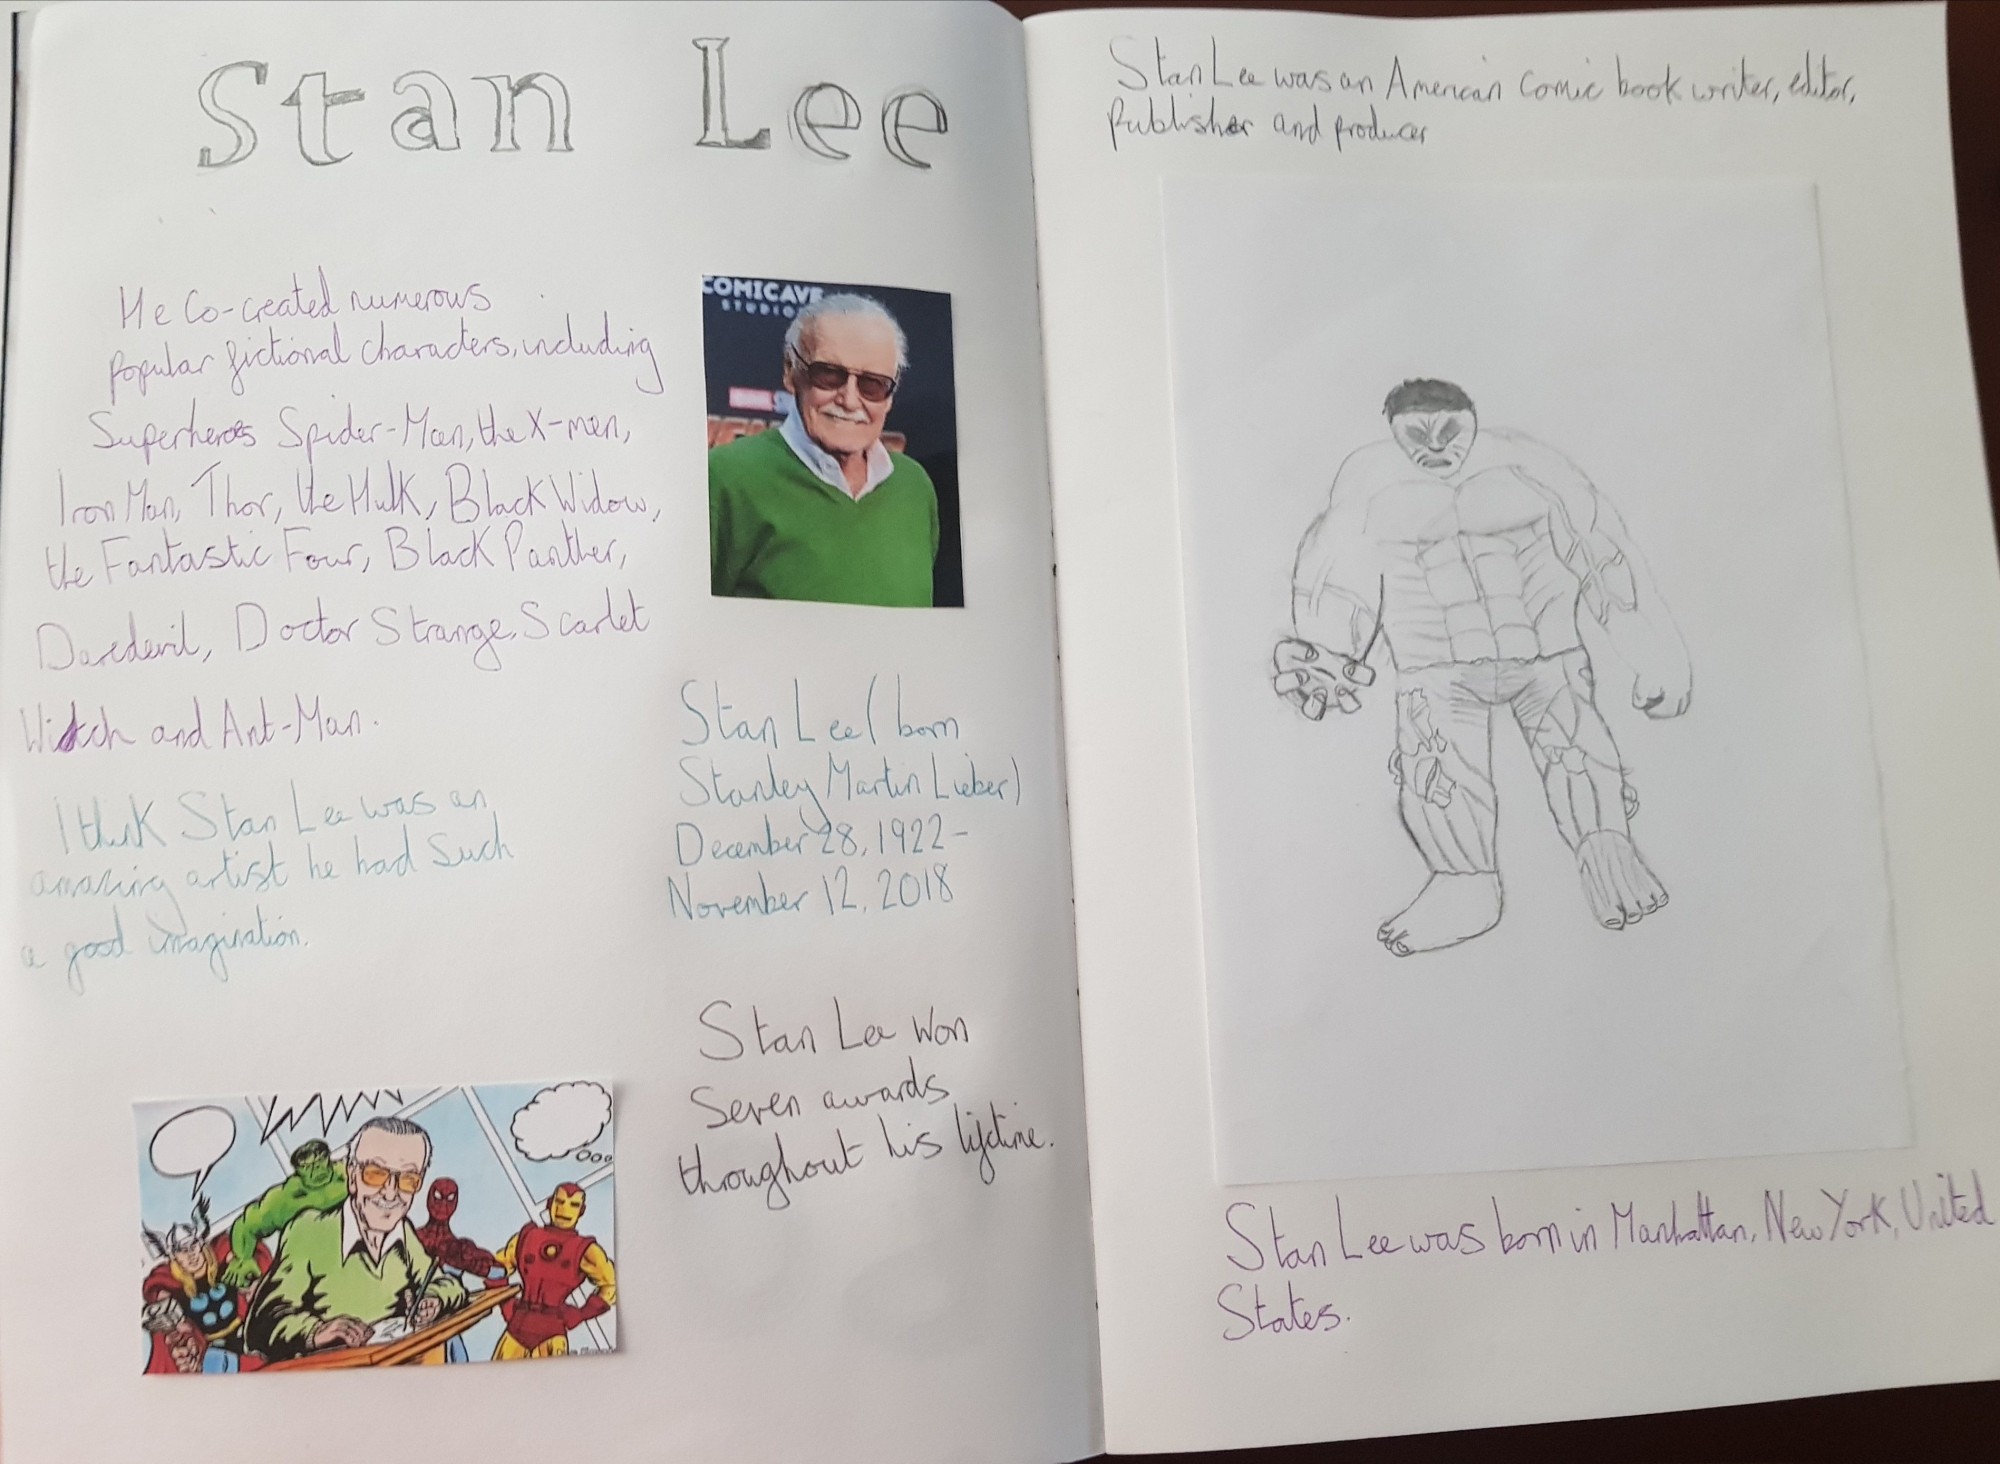 Stan Lee
He Co-created numerous
popular fictional characters, including
Superheroes Spider-Man, the X-men,
Iron Man, Thor, the Hulk, Black Widow,
the Fantastic Four, Black Panther,
Daredevil, Doctor Strange, Scarlet
Witch and Ant-Man.
I think Stan Lee was an
amazing artist he had Such
a good imagination.
COMICAVE
STUDIOS
Stan Lee (born
Stanley Martin Lieber)
December 28, 1922-
November 12, 2018
Stan Lee Won
Seven awards
throughout his lifetime.
Stan Lee was an American Comic book writer, editor,
Publisher and producer
Stan Lee was born in Manhattan, New York, United
States.